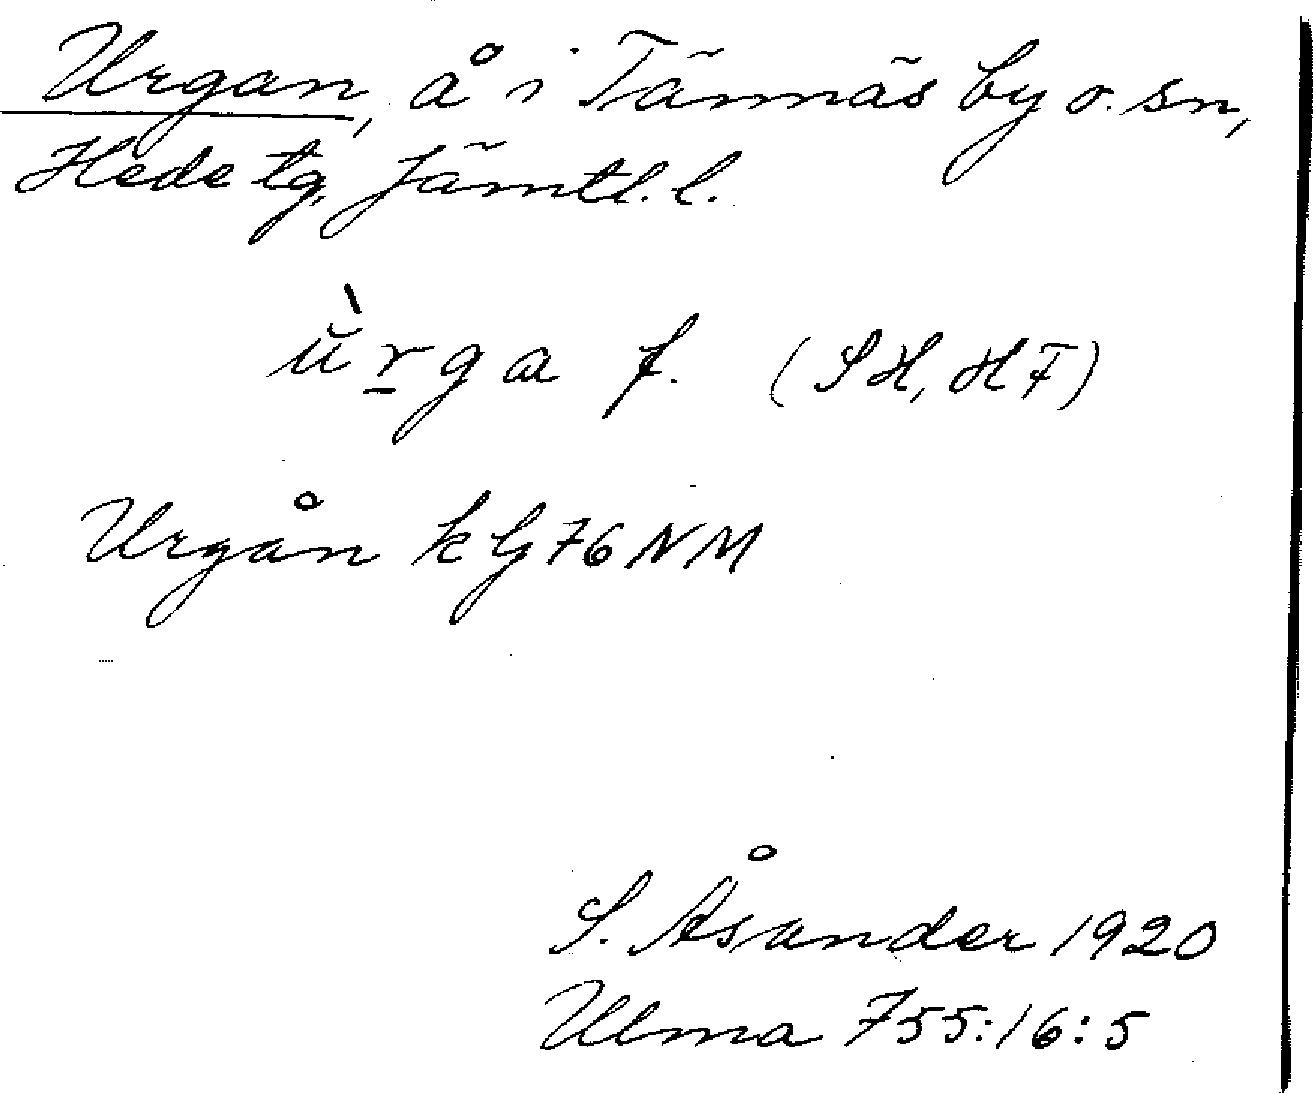 Urgan, å i Tännäs by o. sn,
Hede tg, Jämtl. l.
ŭ̀r̲ga f. (SH, HF)
Urgån kG76NM
S. Åsander 1920
Ulma 755:16:5